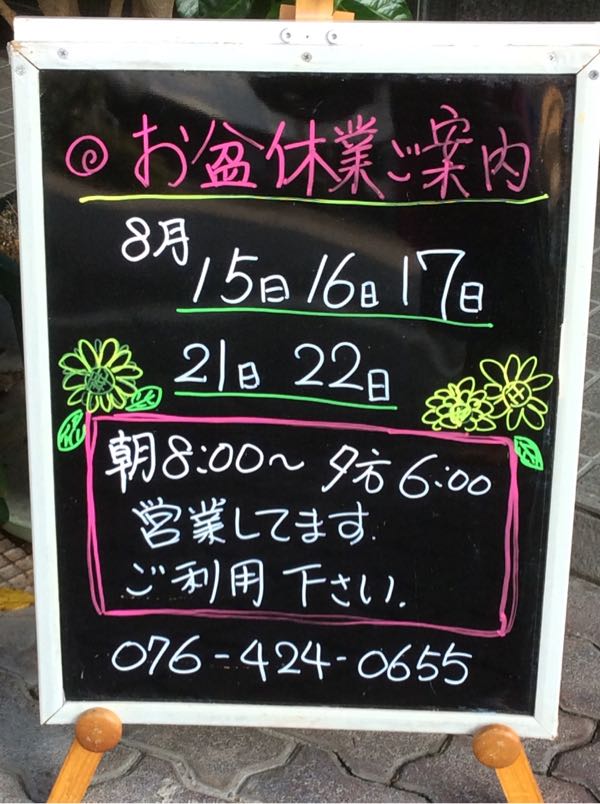 お盆休業ご案内
8月
15日 16日 17日
21日 22日
朝8:00～ 夕方6:00
営業してます.
ご利用下さい.
076-424-0655